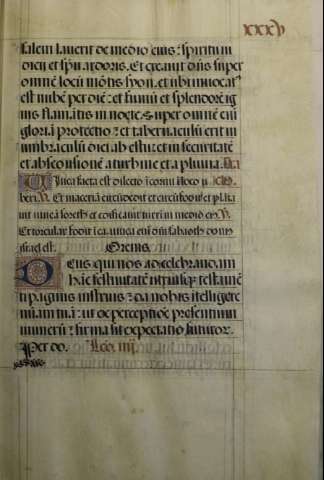 xxxv
salem laverit de medio eius: spiritum
dicii et spū ardoris. Et creavit dn̄s super
omnē locū mōtis syon. et ubi īvocat᷒
est nubē per diē: et fumū et splendorē ig
nis flam̄ātis in nocte. super omnē eni
gloriā protectio: et tabernaculū erit in
umbraculū diei ab estu: et in securitatē
et absconsionē a turbine et a pluvia.
Vinea facta est dilecto ī cornu ī loco u
beri. Et maceriā circūdedit et circūfodit et plāta
vit vineā soreth et edificavit turrim in medio
Et torcular fodit ī ea vinea eni dn̄i sabaoth dom
israel est. Oremus
Deus qui nos ad celebrandam
hāc festivitatē utriusq; testamē
ti paginis instruis: da nobis ītelligere
miām tuā: ut ex perceptiōe presentium
munerū: firma sit expectatio futuror.
Per do. Lec. iiij.